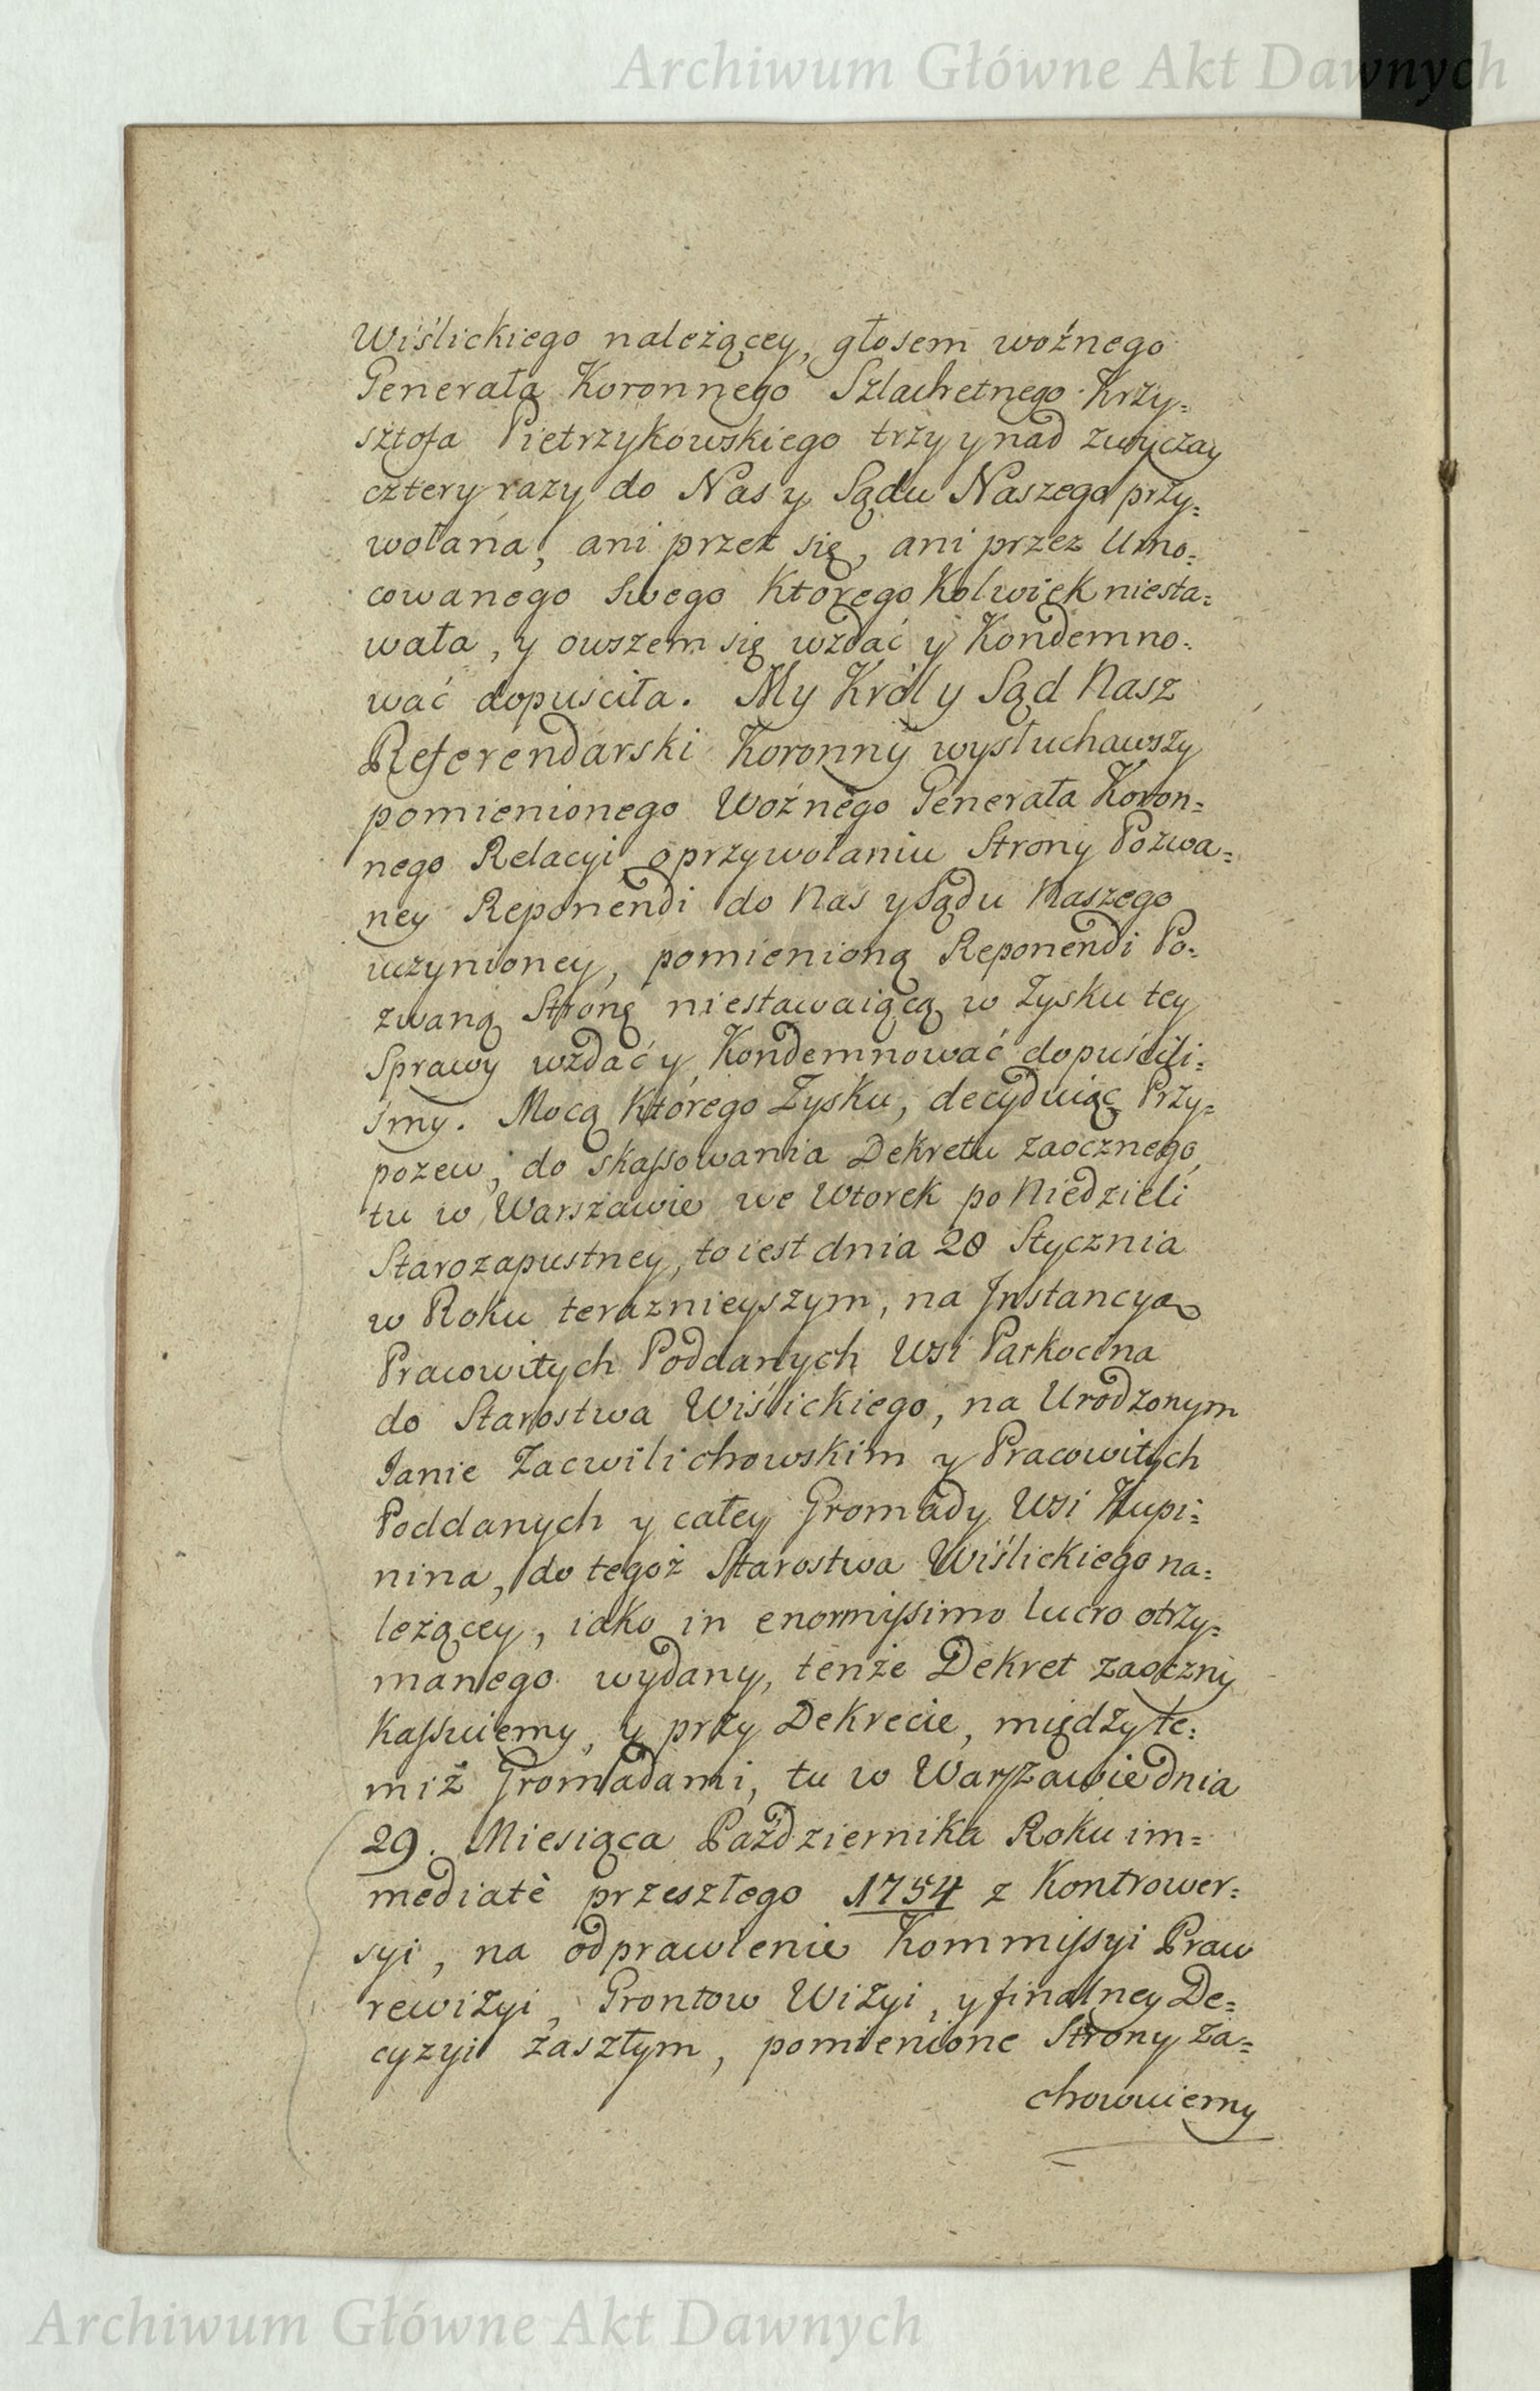 Archiwum Główne Akt Dawnych
Wiślickiego należącey, głosem woźnego
Generała Koronnego Szlachetnego Krzy=
sztofa Pietrzykowskiego trzy y nad zwyczay
cztery razy do Nas y Sądu Naszego przy=
wołana, ani przez się, ani przez Umo=
cowanego swego któregokolwiek niesta=
wała, y owszem się wzdać y Kondemno=
wać dopuściła. My Król y Sąd Nasz
Referendarski Koronny wysłuchawszy
pomienionego Woźnego Generała Koron=
nego Relacyi o przywołaniu Strony Pozwa=
ney Reponendi do Nas y Sądu Naszego
uczynioney, pomienioną Reponendi Po=
zwaną Stronę niestawaiącą w Zysku tey
Sprawy wzdać y Kondemnować dopuścili=
śmy. Mocą którego Zysku, decyduiąc Przy=
pozew, do skassowania Dekretu zaocznego,
tu w Warszawie we Wtorek po Niedzieli
Starozapustney, to iest dnia 28 Stycznia
w Roku teraznieyszym, na Jnstancyą
Pracowitych Poddanych Wsi Parkocina
do Starostwa Wiślickiego, na Urodzonym
Janie Zacwilichowskim y Pracowitych
Poddanych y całey Gromady Wsi Kupi=
nina, do tegoż Starostwa Wiślickiego na=
leżącey, iako in enormissimo lucro otrzy=
manego wydany, tenże Dekret zaoczny
kassuiemy, y przy Dekrecie, między te=
miż Gromadami, tu w Warszawie dnia
29. Miesiąca Października Roku im=
mediatè przeszłego 1754 z Kontrower=
syi, na odprawienie Kommissyi Praw
rewizyi, Grontow Wizyi, y finalney De=
cyzyi zaszłym, pomienione Strony za=
chowuiemy
Archiwum Główne Akt Dawnych